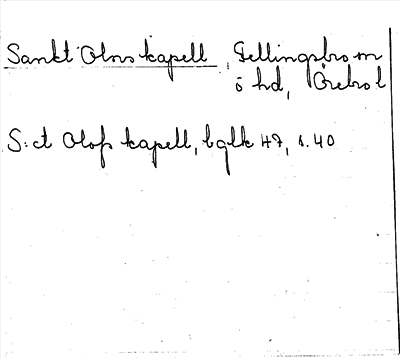 Sankt Olovs kapell, Fellingsbro m
ö hd, Örebro l
S:ct Olofs kapell, bglk 47, s. 40